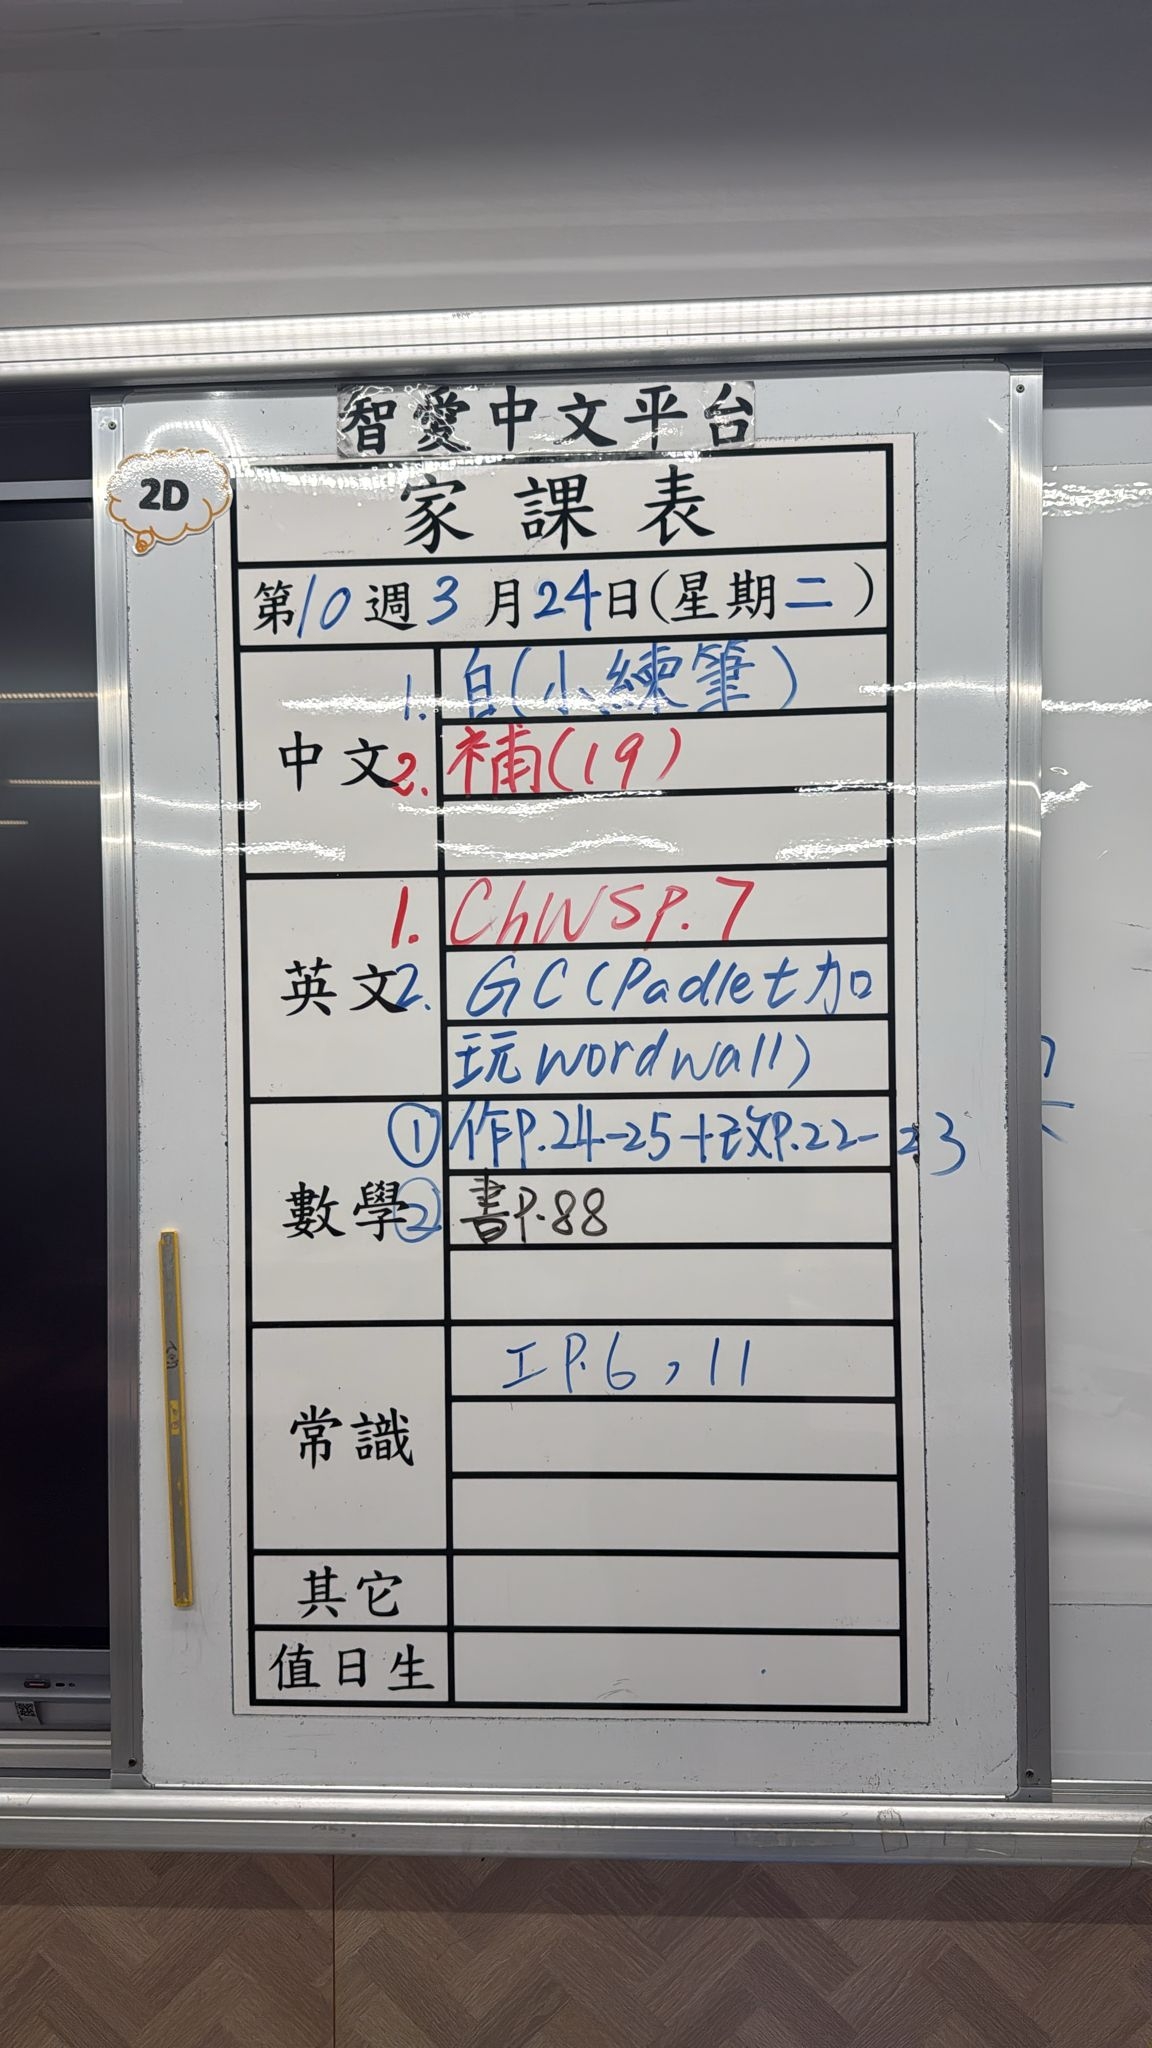 智愛中文平台
2D
家課表
第10週3月24日(星期二)
中文
1. 自(小練筆)
2. 補(19)
英文
1. ChWSP.7
2. GC(Padlet加
玩wordwall)
數學
① 作P.24-25+改P.22-23
② 書P.88
常識
工P.6,11
其它
值日生